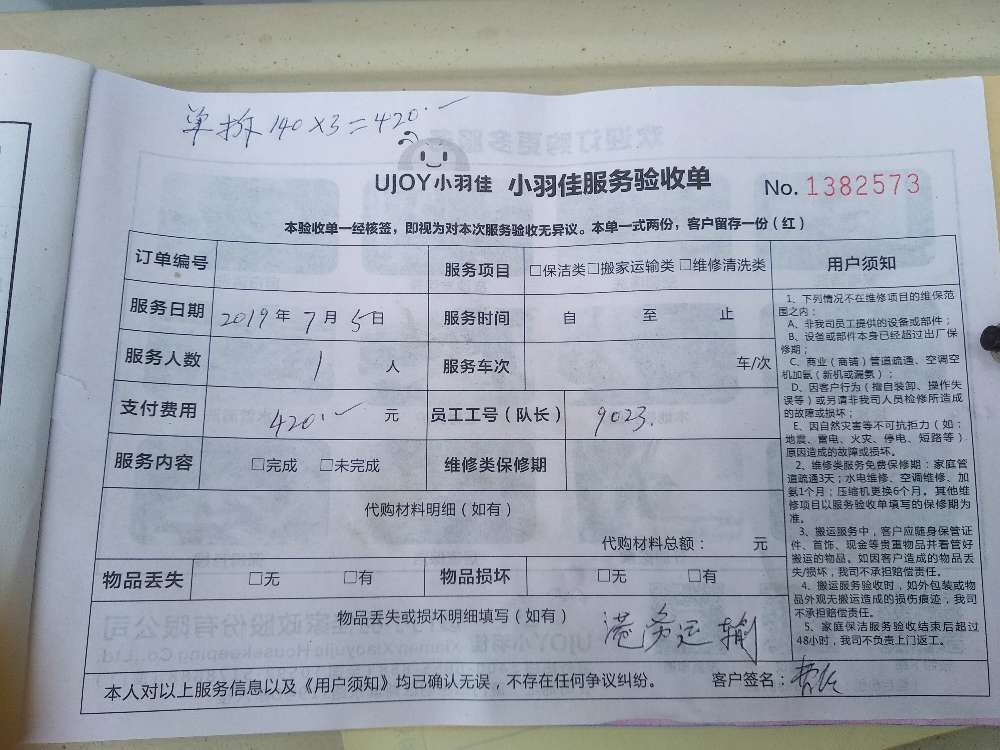 单拆 140×3=420.一
UJOY小羽佳 小羽佳服务验收单 No. 1382573
本验收单一经核签，即视为对本次服务验收无异议。本单一式两份，客户留存一份（红）
订单编号 服务项目 □保洁类□搬家运输类 □维修清洗类
服务日期 2019年 7月 5日 服务时间 自 至 止
服务人数 1 人 服务车次 车/次
支付费用 420.一 元 员工工号（队长） 9023.
服务内容 □完成 □未完成 维修类保修期
代购材料明细（如有）
代购材料总额： 元
物品丢失 □无 □有 物品损坏 □无 □有
物品丢失或损坏明细填写（如有）
港务运输
本人对以上服务信息以及《用户须知》均已确认无误，不存在任何争议纠纷。 客户签名：
用户须知
1、下列情况不在维修项目的维保范
围之内：
A、非我司员工提供的设备或部件；
B、设备或部件本身已经超过出厂保
修期；
C、商业（商铺）管道疏通、空调空
机加氨（新机或漏氨）；
D、因客户行为（擅自装卸、操作失
误等）或另请非我司人员检修所造成
的故障或损坏；
E、因自然灾害等不可抗拒力（如：
地震、雷电、火灾、停电、短路等）
原因造成的故障或损坏。
2、维修类服务免费保修期：家庭管
道疏通3天；水电维修、空调维修、加
氨1个月；压缩机更换6个月。其他维
修项目以服务验收单填写的保修期为
准。
3、搬运服务中，客户应随身保管证
件、首饰、现金等贵重物品并看管好
搬运的物品。如因客户造成的物品丢
失/损坏，我司不承担赔偿责任。
4、搬运服务验收时，如外包装或物
品外观无搬运造成的损伤痕迹，我司
不承担赔偿责任。
5、家庭保洁服务验收结束后超过
48小时，我司不负责上门返工。